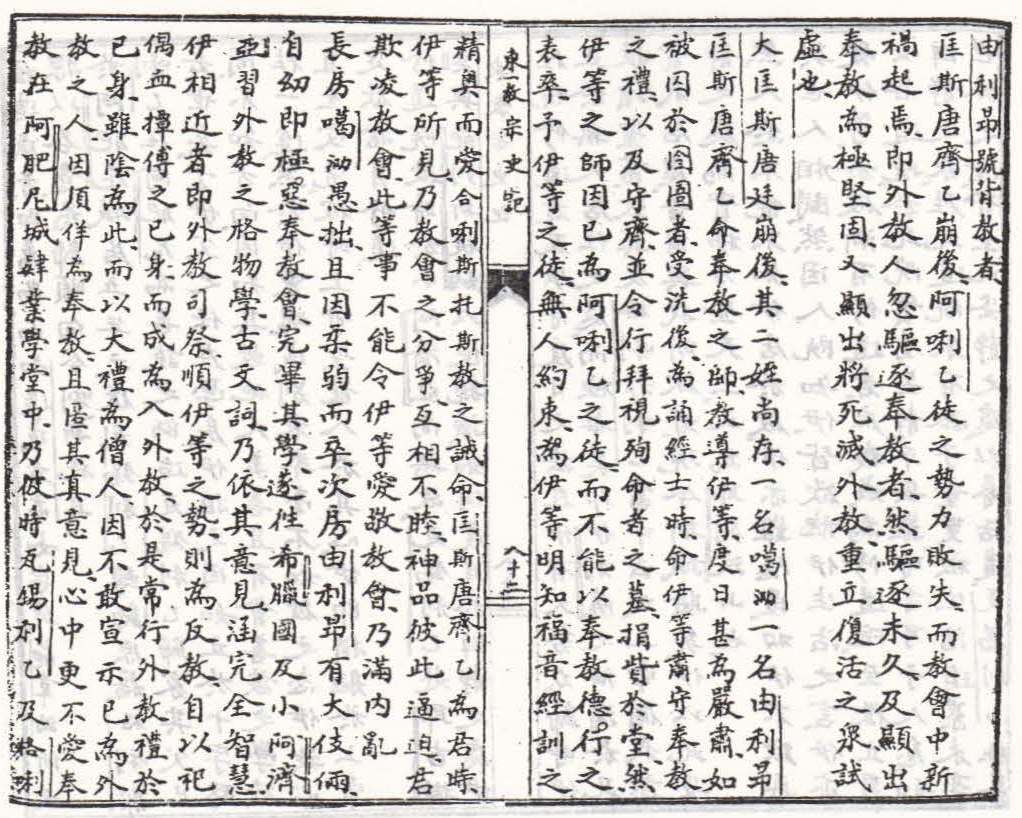 由利昂號背教者
匡斯唐齊乙崩後阿唎乙徒之勢力敗失而教會中新
禍起焉即外教人忽驅逐奉教者然驅逐未久及顯出
奉教為極堅固又顯出將死滅外教重立復活之眾試
虛也
大匡斯唐廷崩後其二姪尚存一名噶泐一名由利昂
匡斯唐齊乙命奉教之師教導伊等度日甚為嚴肅如
被囚於囹圄者受洗後為誦經士時命伊等肅守奉教
之禮以及守齊並令行拜視殉命者之墓捐貲於堂然
伊等之師因已為阿唎乙之徒而不能以奉教德行之
表率予伊等之徒無人約束為伊等明知福音經訓之
東一教宗史記
八十二
精奧而愛合唎斯托斯教之誡命匡斯唐齊乙為君時
伊等所見乃教會之分爭互相不睦神品彼此逼迫君
欺凌教會此等事不能令伊等愛敬教會乃滿內亂
長房噶泐愚拙且因柔弱而卒次房由利昂有大伎倆
自幼即極惡奉教會完畢其學遂往希臘國及小阿濟
亞習外教之格物學古文詞乃依其意見涵完全智慧
伊相近者即外教司祭順伊等之勢則為反教自以祀
偶血擦傅之已身而成為入外教於是常行外教禮於
已身雖陰為此而以大禮為僧人因不敢宣示已為外
教之人因須佯為奉教且匿其真意見心中更不愛奉
教在阿肥尼城肄業學堂中乃彼時瓦錫利乙及格唎